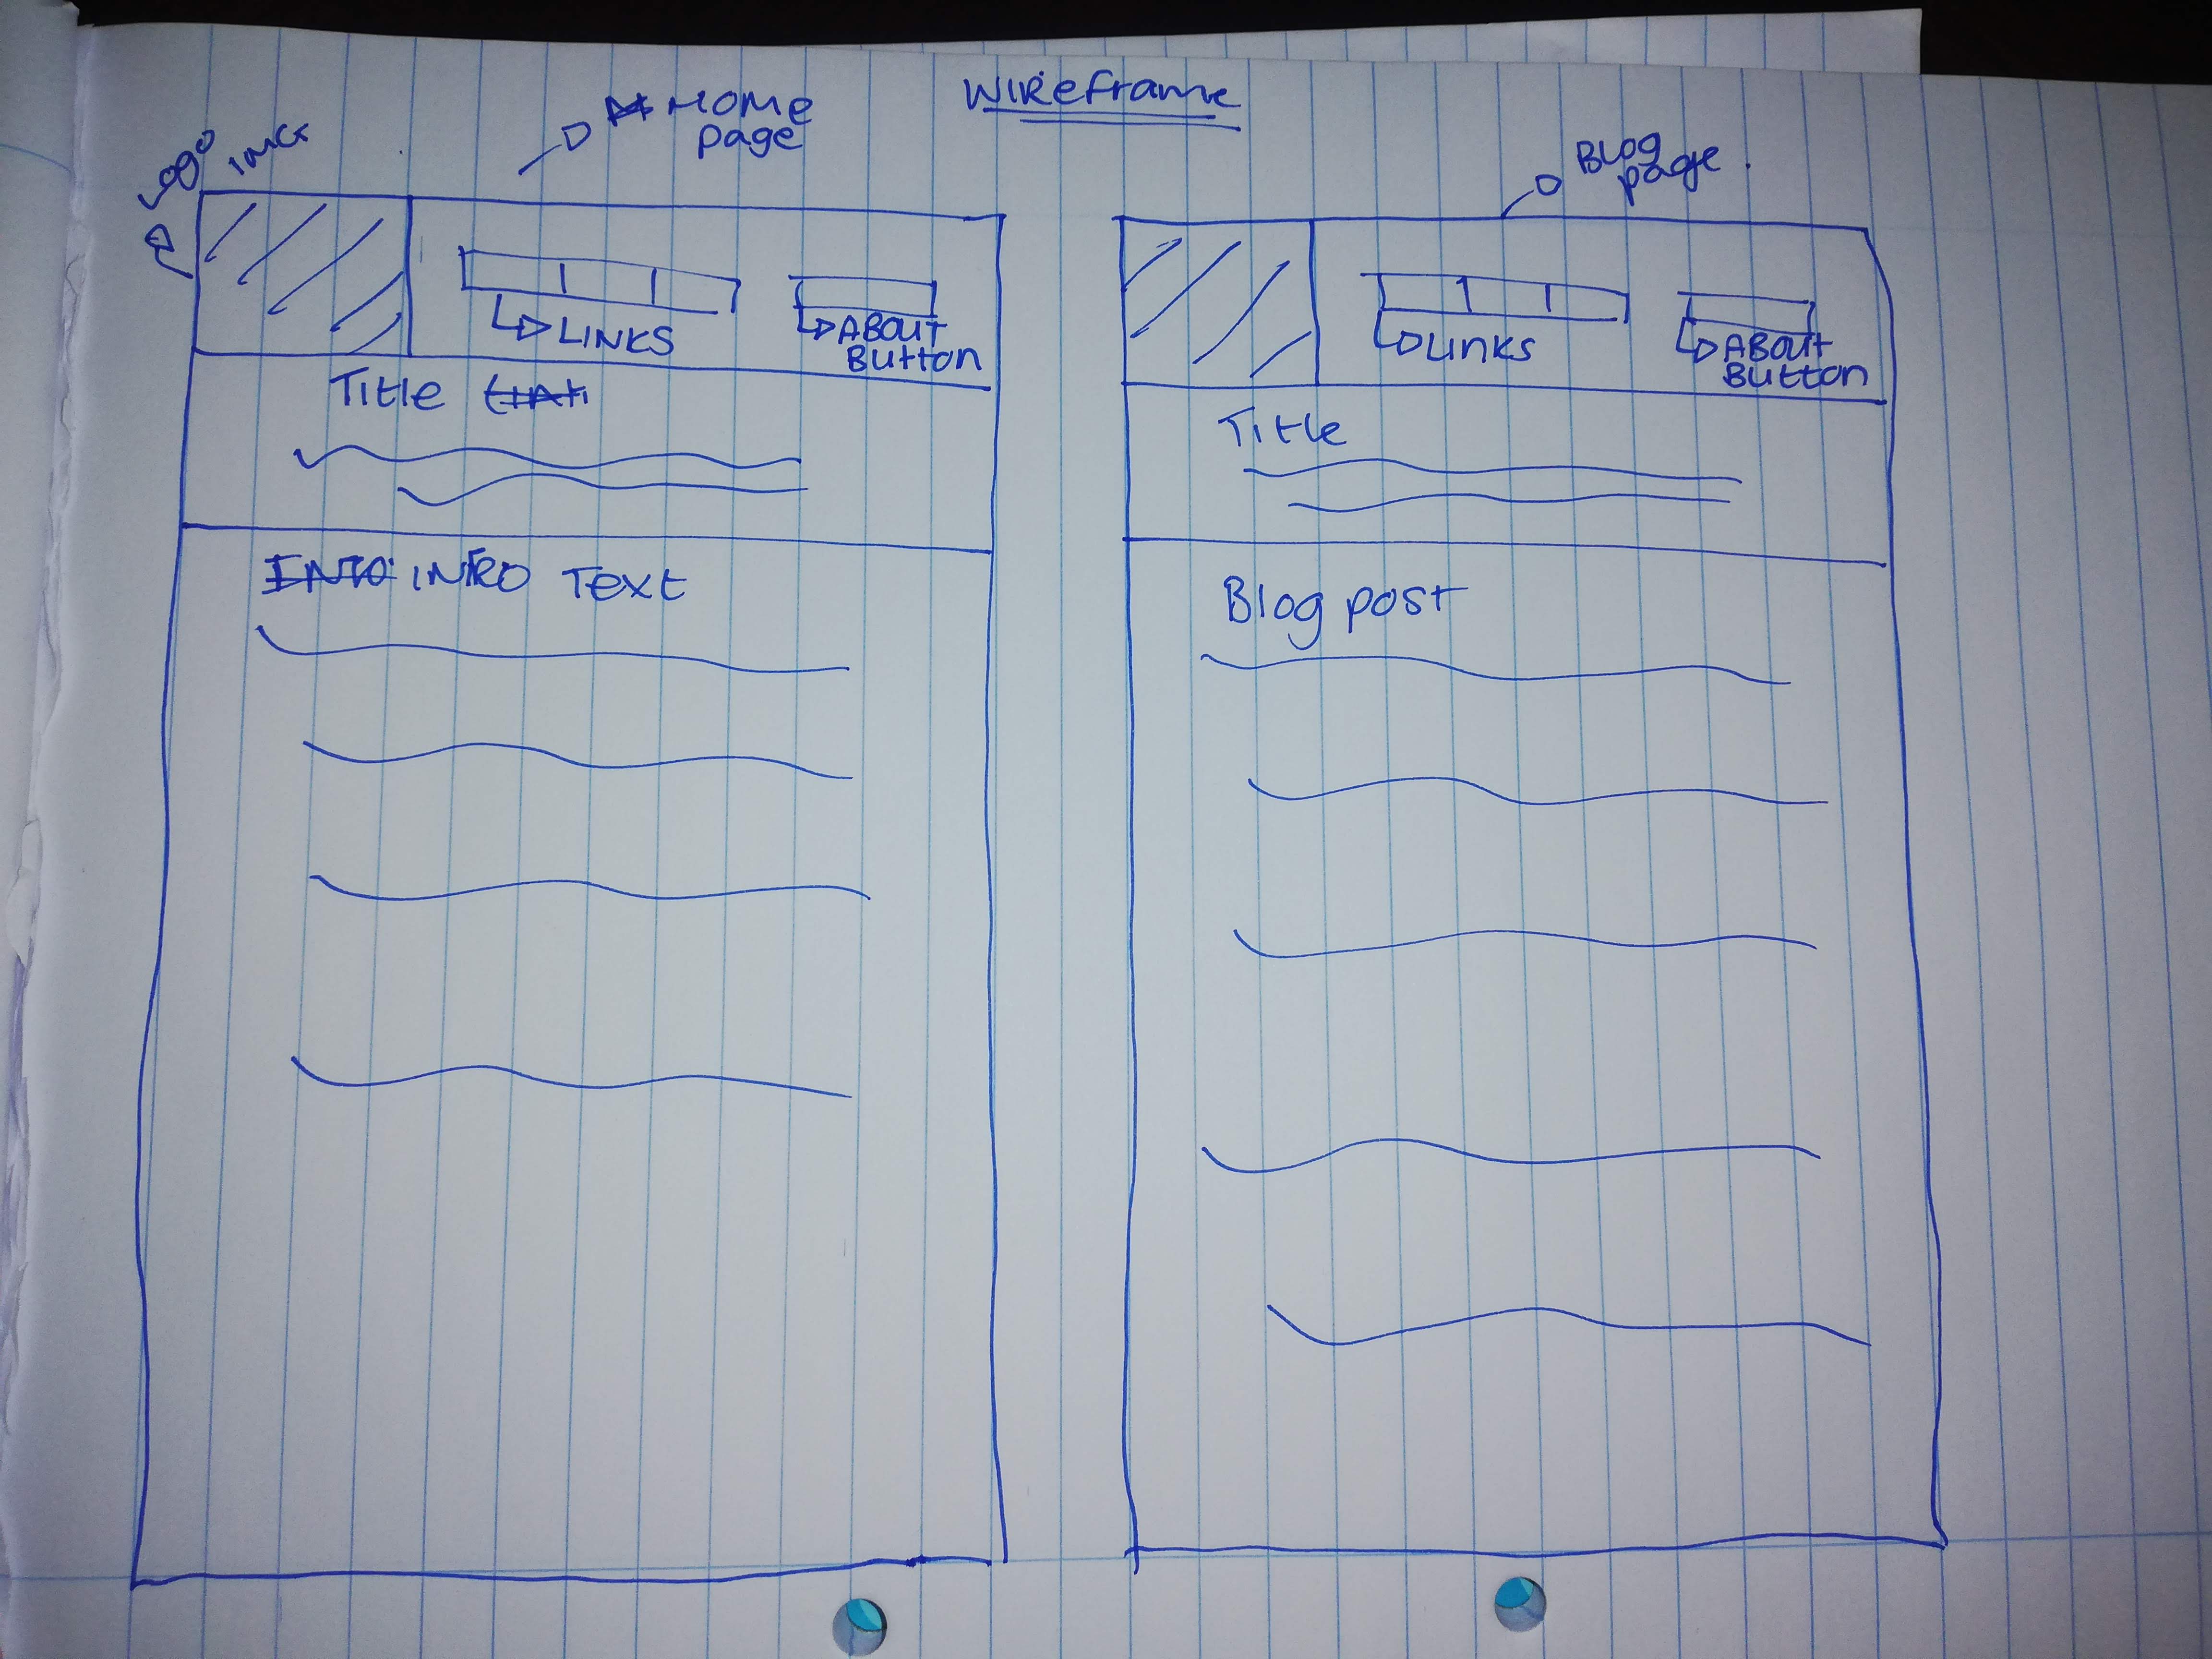 WIREframe
Home
page
Logo
IMG
LINKS
ABOUT
Button
Title
INTRO Text
Blog
page.
Links
ABout
Button
Title
Blog post